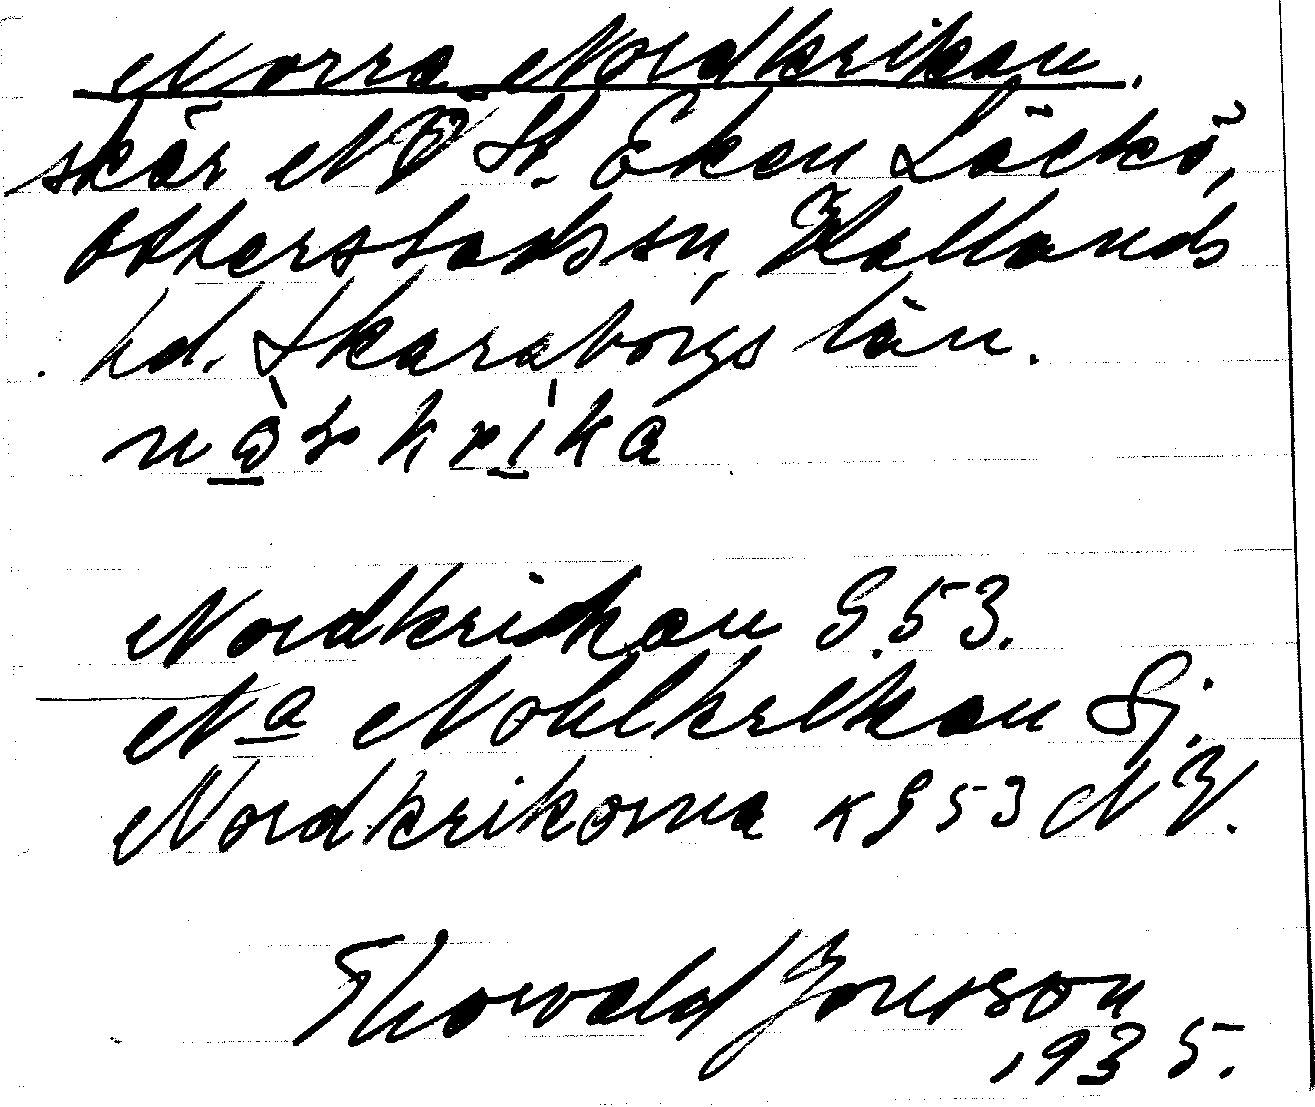 Norra Nordkrikan.
skär NÖ St. Eken Läckö,
Otterstads sn, Kållands
hd. Skaraborgs län.
Nordkrikan G. 53.
Na Nohlkrikan Sj.
Nordkrikorna KG 53 NV.
Thorvald Jonsson
1935.